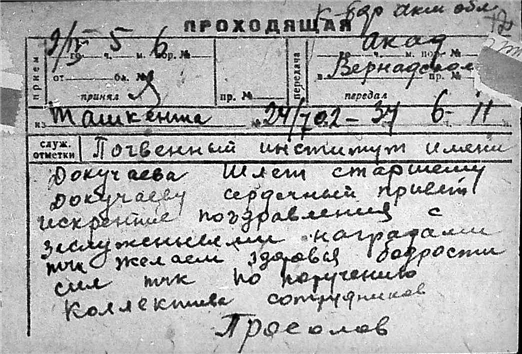 ПРОХОДЯЩАЯ
к бор акм обл
9/IV го 5 ч. 6 м. пор. №
Акад
го ч. м. пор. №
прием
передача
от бл. №
Вернадском
в пр. №
принял
пр. №
передал
из Ташкента № 24/702-34 6- 11
служ. отметки
Почвенный институт имени
Докучаева шлет старшему
докучаеву сердечный привет
искренние поздравления с
заслуженными наградами
тчк желаем здоровья бодрости
сил тчк по поручению
коллектива сотрудников
Просолов